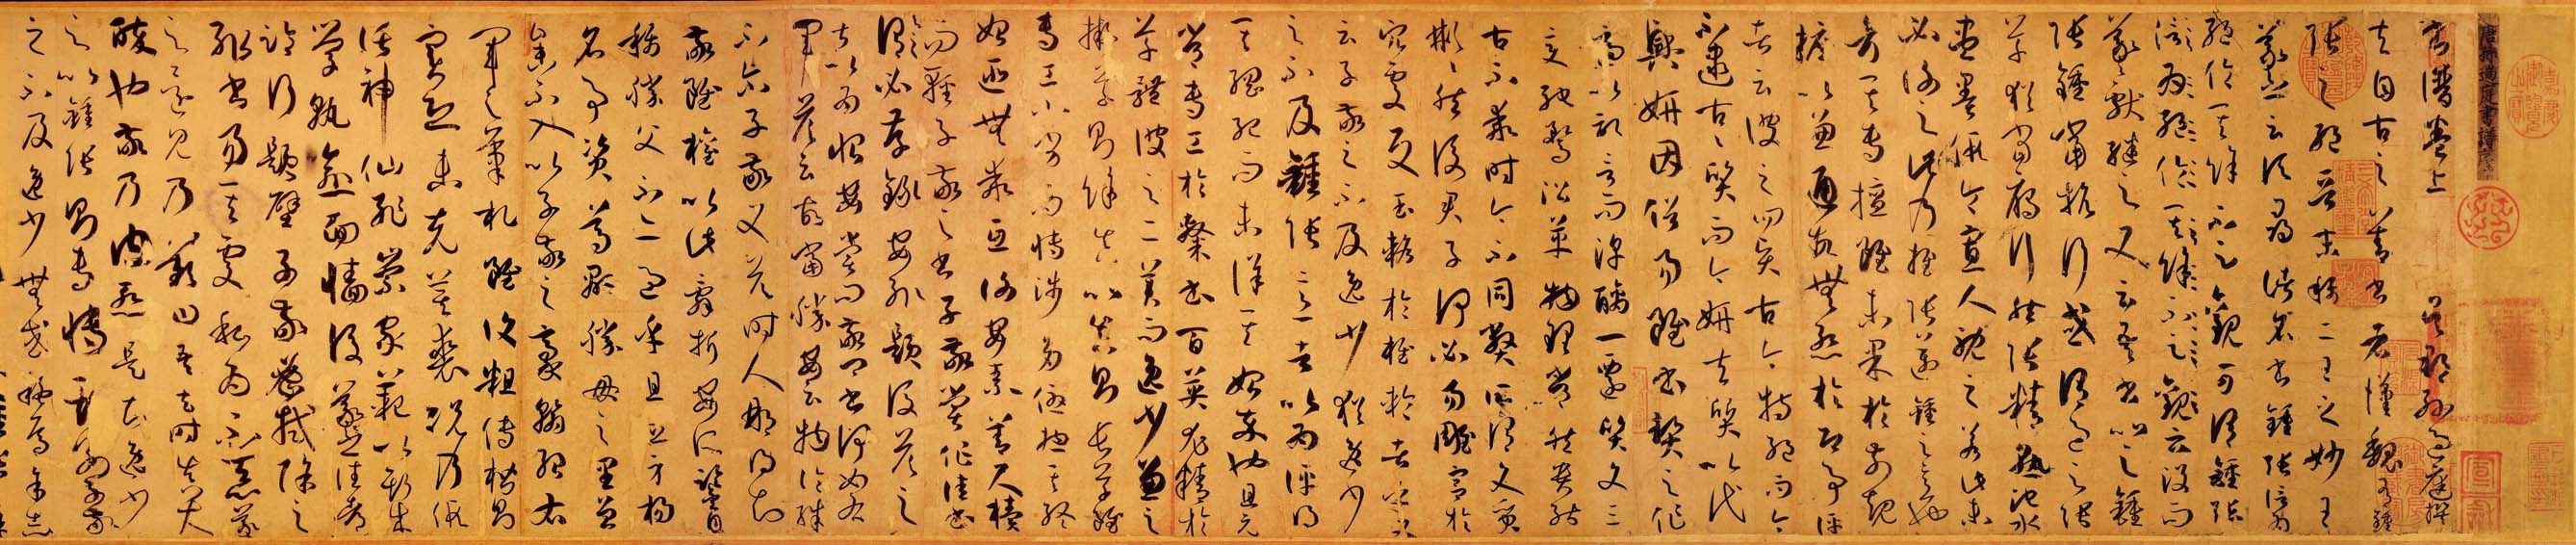 唐孫過庭書譜序
書譜卷上 吳郡孫過庭撰
夫自古之善書者漢魏有鍾
張之絕晉末稱二王之妙王
羲之云頃尋諸名書鍾張信為
絕倫其餘不足觀可謂鍾張
云沒而
羲獻繼之又云吾書比之鍾
張鍾當抗行或謂過之張
草猶當鴈行然張精熟池水
盡墨假令寡人耽之若此未
必謝之此乃推張邁鍾之意也
考其專擅雖未果於前規
摭以兼通故無慚於即事評
者云彼之四賢古今特絕而今
不逮古古質而今妍夫質以代
興妍因俗易雖書契之作
適以記言而淳醨一遷質文三
變馳騖沿革物理常然貴能
古不乖時今不同弊所謂文質
彬彬然後君子何必易雕宮於
穴處反玉輅於椎輪者乎又
云子敬之不及逸少猶逸少
之不及鍾張意者以為評得
其綱紀而未詳其始卒也且元
常專工於隸書百英尤精於
草體彼之二美而逸少兼之
擬草則餘真比真則長草雖
專工小劣而博涉多優總其終
始匪無乖互謝安素善尺牘
而輕子敬之書子敬嘗作佳書
與之謂必存錄安輒題後答之
甚以為恨安嘗問敬卿書何如右
軍答云故當勝安云物論殊
不爾子敬又答時人那得知
敬雖權以此辭折安所鑒自
稱勝父不亦過乎且立身揚
名事資尊顯勝母之里曾
參不入以子敬之豪翰紹右
軍之筆札雖復粗傳楷則
實恐未克箕裘況乃假
託神仙恥崇家範以斯成
學孰愈面牆後羲之往都
臨行題壁子敬密拭除之
輒書易其處私為不惡羲
之還見乃歎曰吾去時真大
醉也敬乃內慚是知逸少
之比鍾張則專博斯別子敬
之不及逸少無或疑焉余志